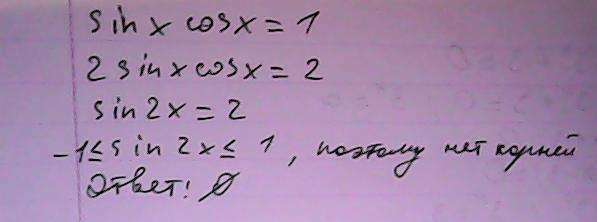 sin x cosx = 1
2 sinx cosx = 2
sin 2x = 2
-1≤ sin 2x ≤ 1, поэтому нет корней
Ответ: ∅